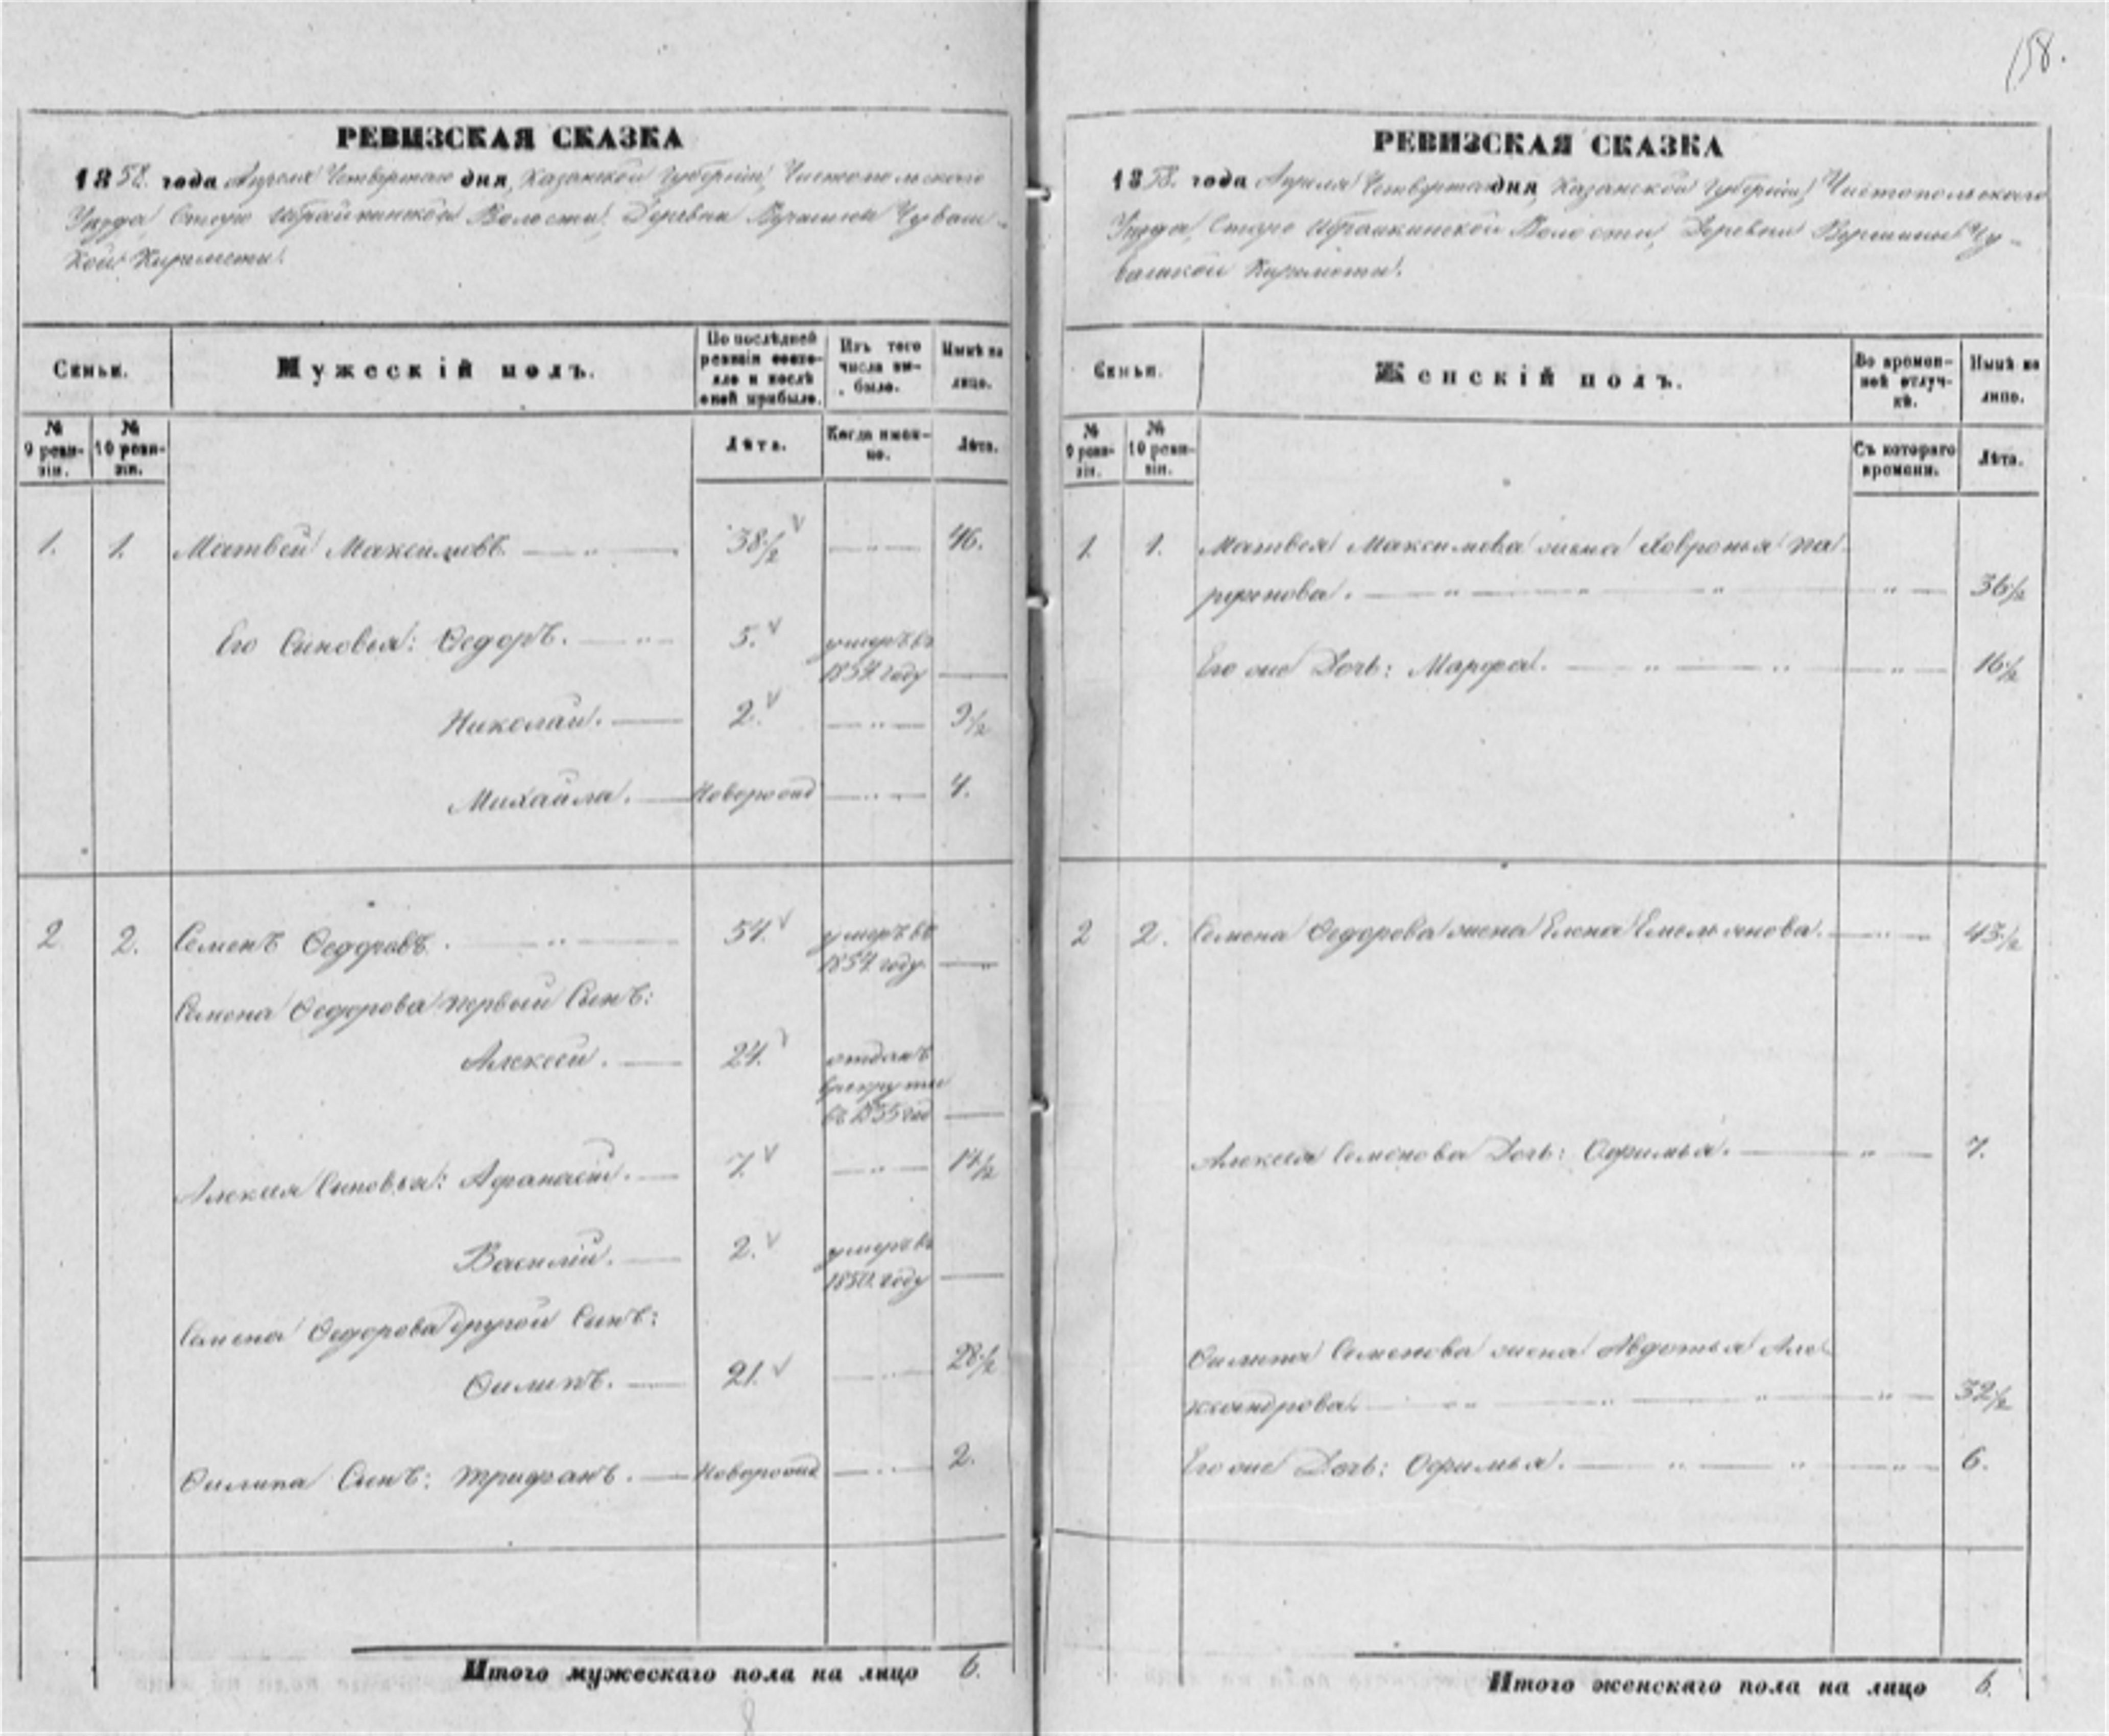 158.
РЕВИЗСКАЯ СКАЗКА
1858. года Апреля Четвертаго дня, Казанской Губерніи, Чистопольскаго
Уезда Старо Ибрайкинской Волости, Деревни Вершины Чуваш-
кой Киремети.
Семьи.
Мужескій полъ.
По послѣдней ревизіи состояло и послѣ оной прибыло.
Изъ того числа выбыло.
Нынѣ на лицо.
№ 9 ревизіи.
№ 10 ревизіи.
Лѣта.
Когда именно.
Лѣта.
1. 1. Матвей Максимовъ 38 1/2 46.
Его Сыновья: Ѳедоръ. 5. умеръ въ
1854 году
Николай. 2. 9 1/2
Михайла. Новорожд 4.
2 2. Семенъ Ѳедоровъ. 54. умеръ въ
1854 году
Семена Ѳедорова первый Сынъ:
Алексей. 24. отданъ
в рекруты
въ 1855 год
Алексея Сыновья: Афанасій. 7. 14 1/2
Василій. 2. умеръ въ
1850. году
Семена Ѳедорова другой Сынъ:
Ѳилипъ. 21. 28 1/2
Ѳилипа Сынъ: Трифанъ. Новорожд 2.
Итого мужескаго пола на лицо 6.
РЕВИЗСКАЯ СКАЗКА
1858. года Апреля Четвертаго дня, Казанской Губерніи, Чистопольскаго
Уезда, Старо Ибраикинской Волости, Деревни Вершины Чу-
вашкой Киремети.
Семьи.
Женскій полъ.
Во временной отлучкѣ.
Нынѣ на лицо.
№ 9 ревизіи.
№ 10 ревизіи.
Съ котораго времени.
Лѣта.
1. 1. Матвея Максимова жена Ховронья Па
рфенова. 36 1/2
Его же Дочь: Марфа. 16 1/2
2 2. Семена Ѳедорова жена Елена Емельянова. 43 1/2
Алексея Семенова Дочь: Офимья. 7.
Ѳилипа Семенова жена Авдотья Але
ксандрова. 32 1/2
Его же Дочь: Офимья. 6.
Итого женскаго пола на лицо 6.